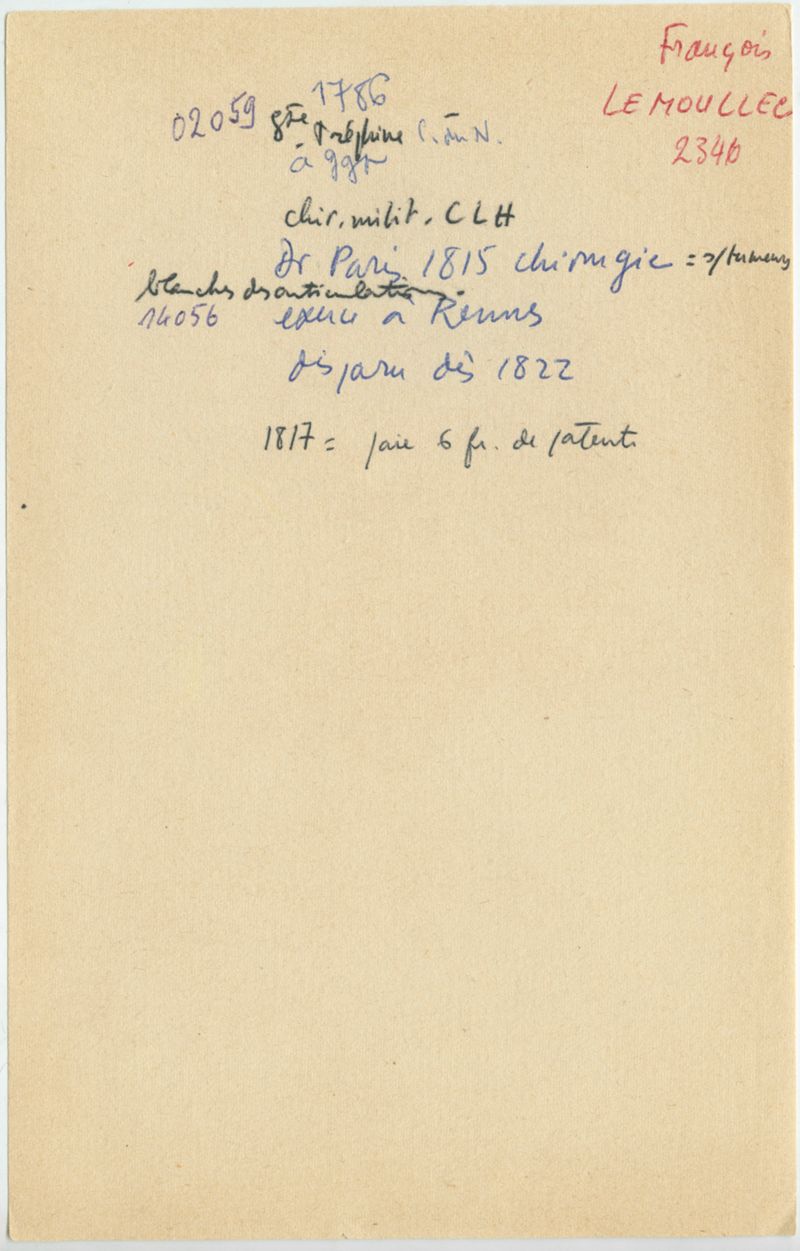 François
LE MOULLEC
2346
1786
02059 gte Tréphine C. du N.
à
chir. milit. CLH
Dr Paris 1815 chirurgie = s/tumeurs
blanches des articulations.
14056 exerce à Rennes
disparu dès 1822
1817 = paie 6 fr. de patente